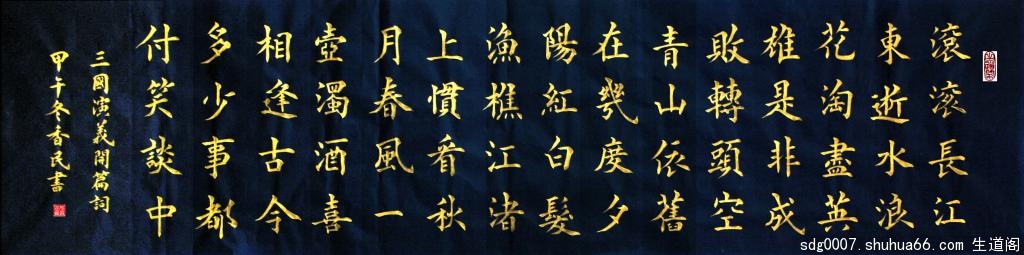 滾滾長江
東逝水浪
花淘盡英
雄是非成
敗轉頭空
青山依舊
在幾度夕
陽紅白髮
漁樵江渚
上慣看秋
月春風一
壺濁酒喜
相逢古今
多少事都
付笑談中
三國演義開篇詞
甲午冬香民書
sdg0007.shuhua66.com 生道阁